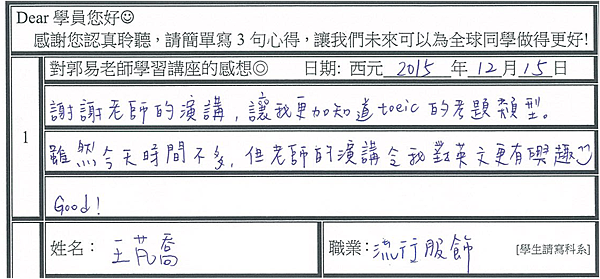 Dear 學員您好☺
感謝您認真聆聽，請簡單寫 3 句心得，讓我們未來可以為全球同學做得更好!
對郭易老師學習講座的感想◎ 日期: 西元 2015 年 12 月 15 日
1
謝謝老師的演講，讓我更加知道toeic的考題類型。
雖然今天時間不多，但老師的演講令我對英文更有興趣☺
Good!
姓名： 王芃喬 職業：流行服飾 [學生請寫科系]